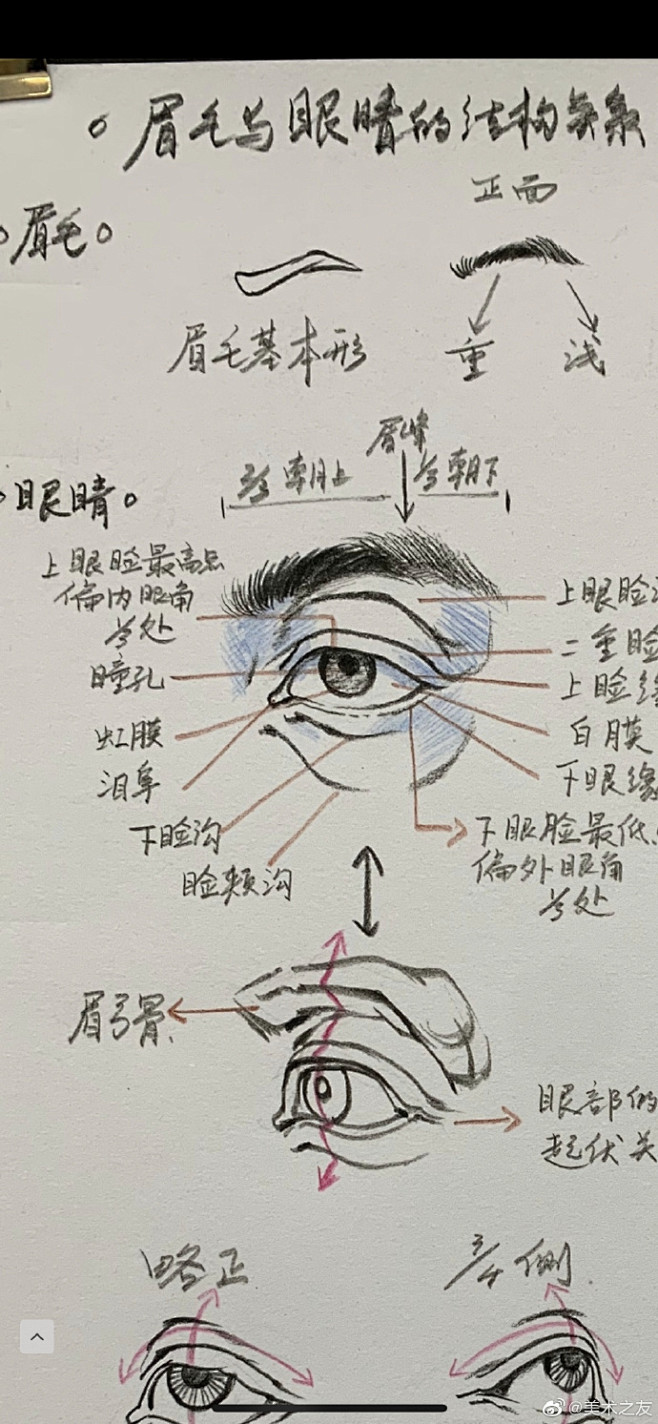 眉毛与眼睛的结构关系
正面
眉毛
眉毛基本形
重
浅
眉峰
朝上
朝下
眼睛
上眼睑最高点
偏内眼角
⅓处
瞳孔
虹膜
泪阜
下睑沟
睑颊沟
上眼睑
二重睑
上睑缘
白膜
下眼缘
下眼睑最低
偏外眼角
⅓处
眉弓骨
眼部的
起伏关
略正
3/4侧
@美术之友